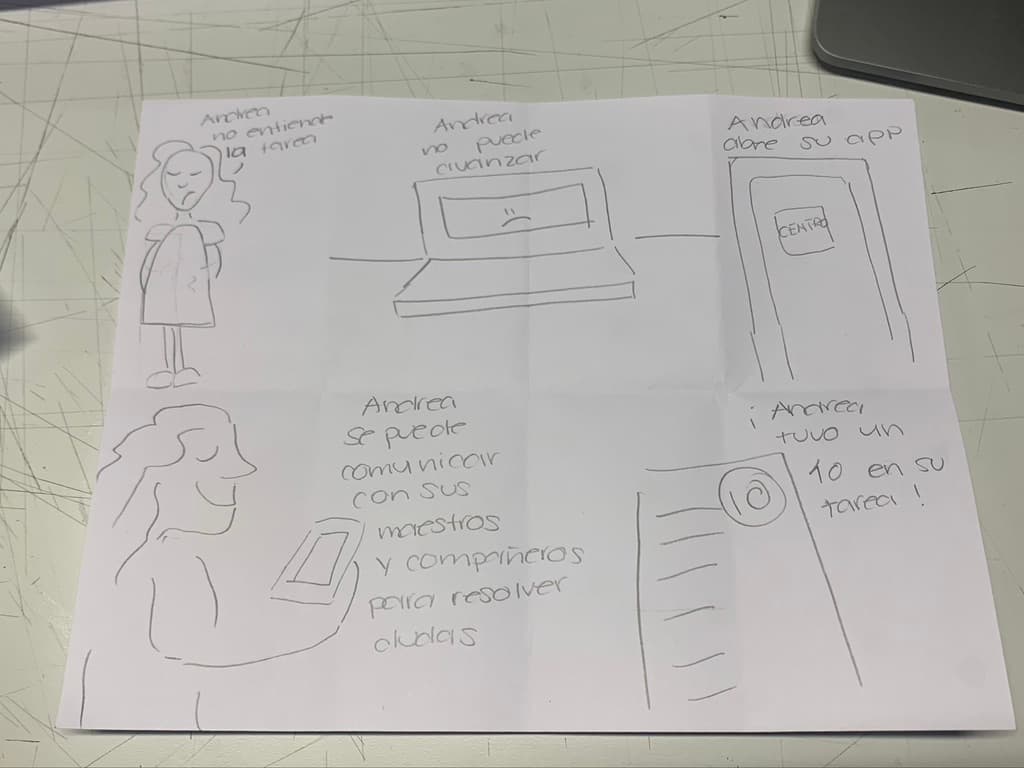 Andrea
no entiende
la tarea
Andrea
no puede
avanzar
Andrea
abre su app
CENTRO
Andrea
se puede
comunicar
con sus
maestros
y compañeros
para resolver
dudas
¡Andrea
tuvo un
10 en su
tarea!
10